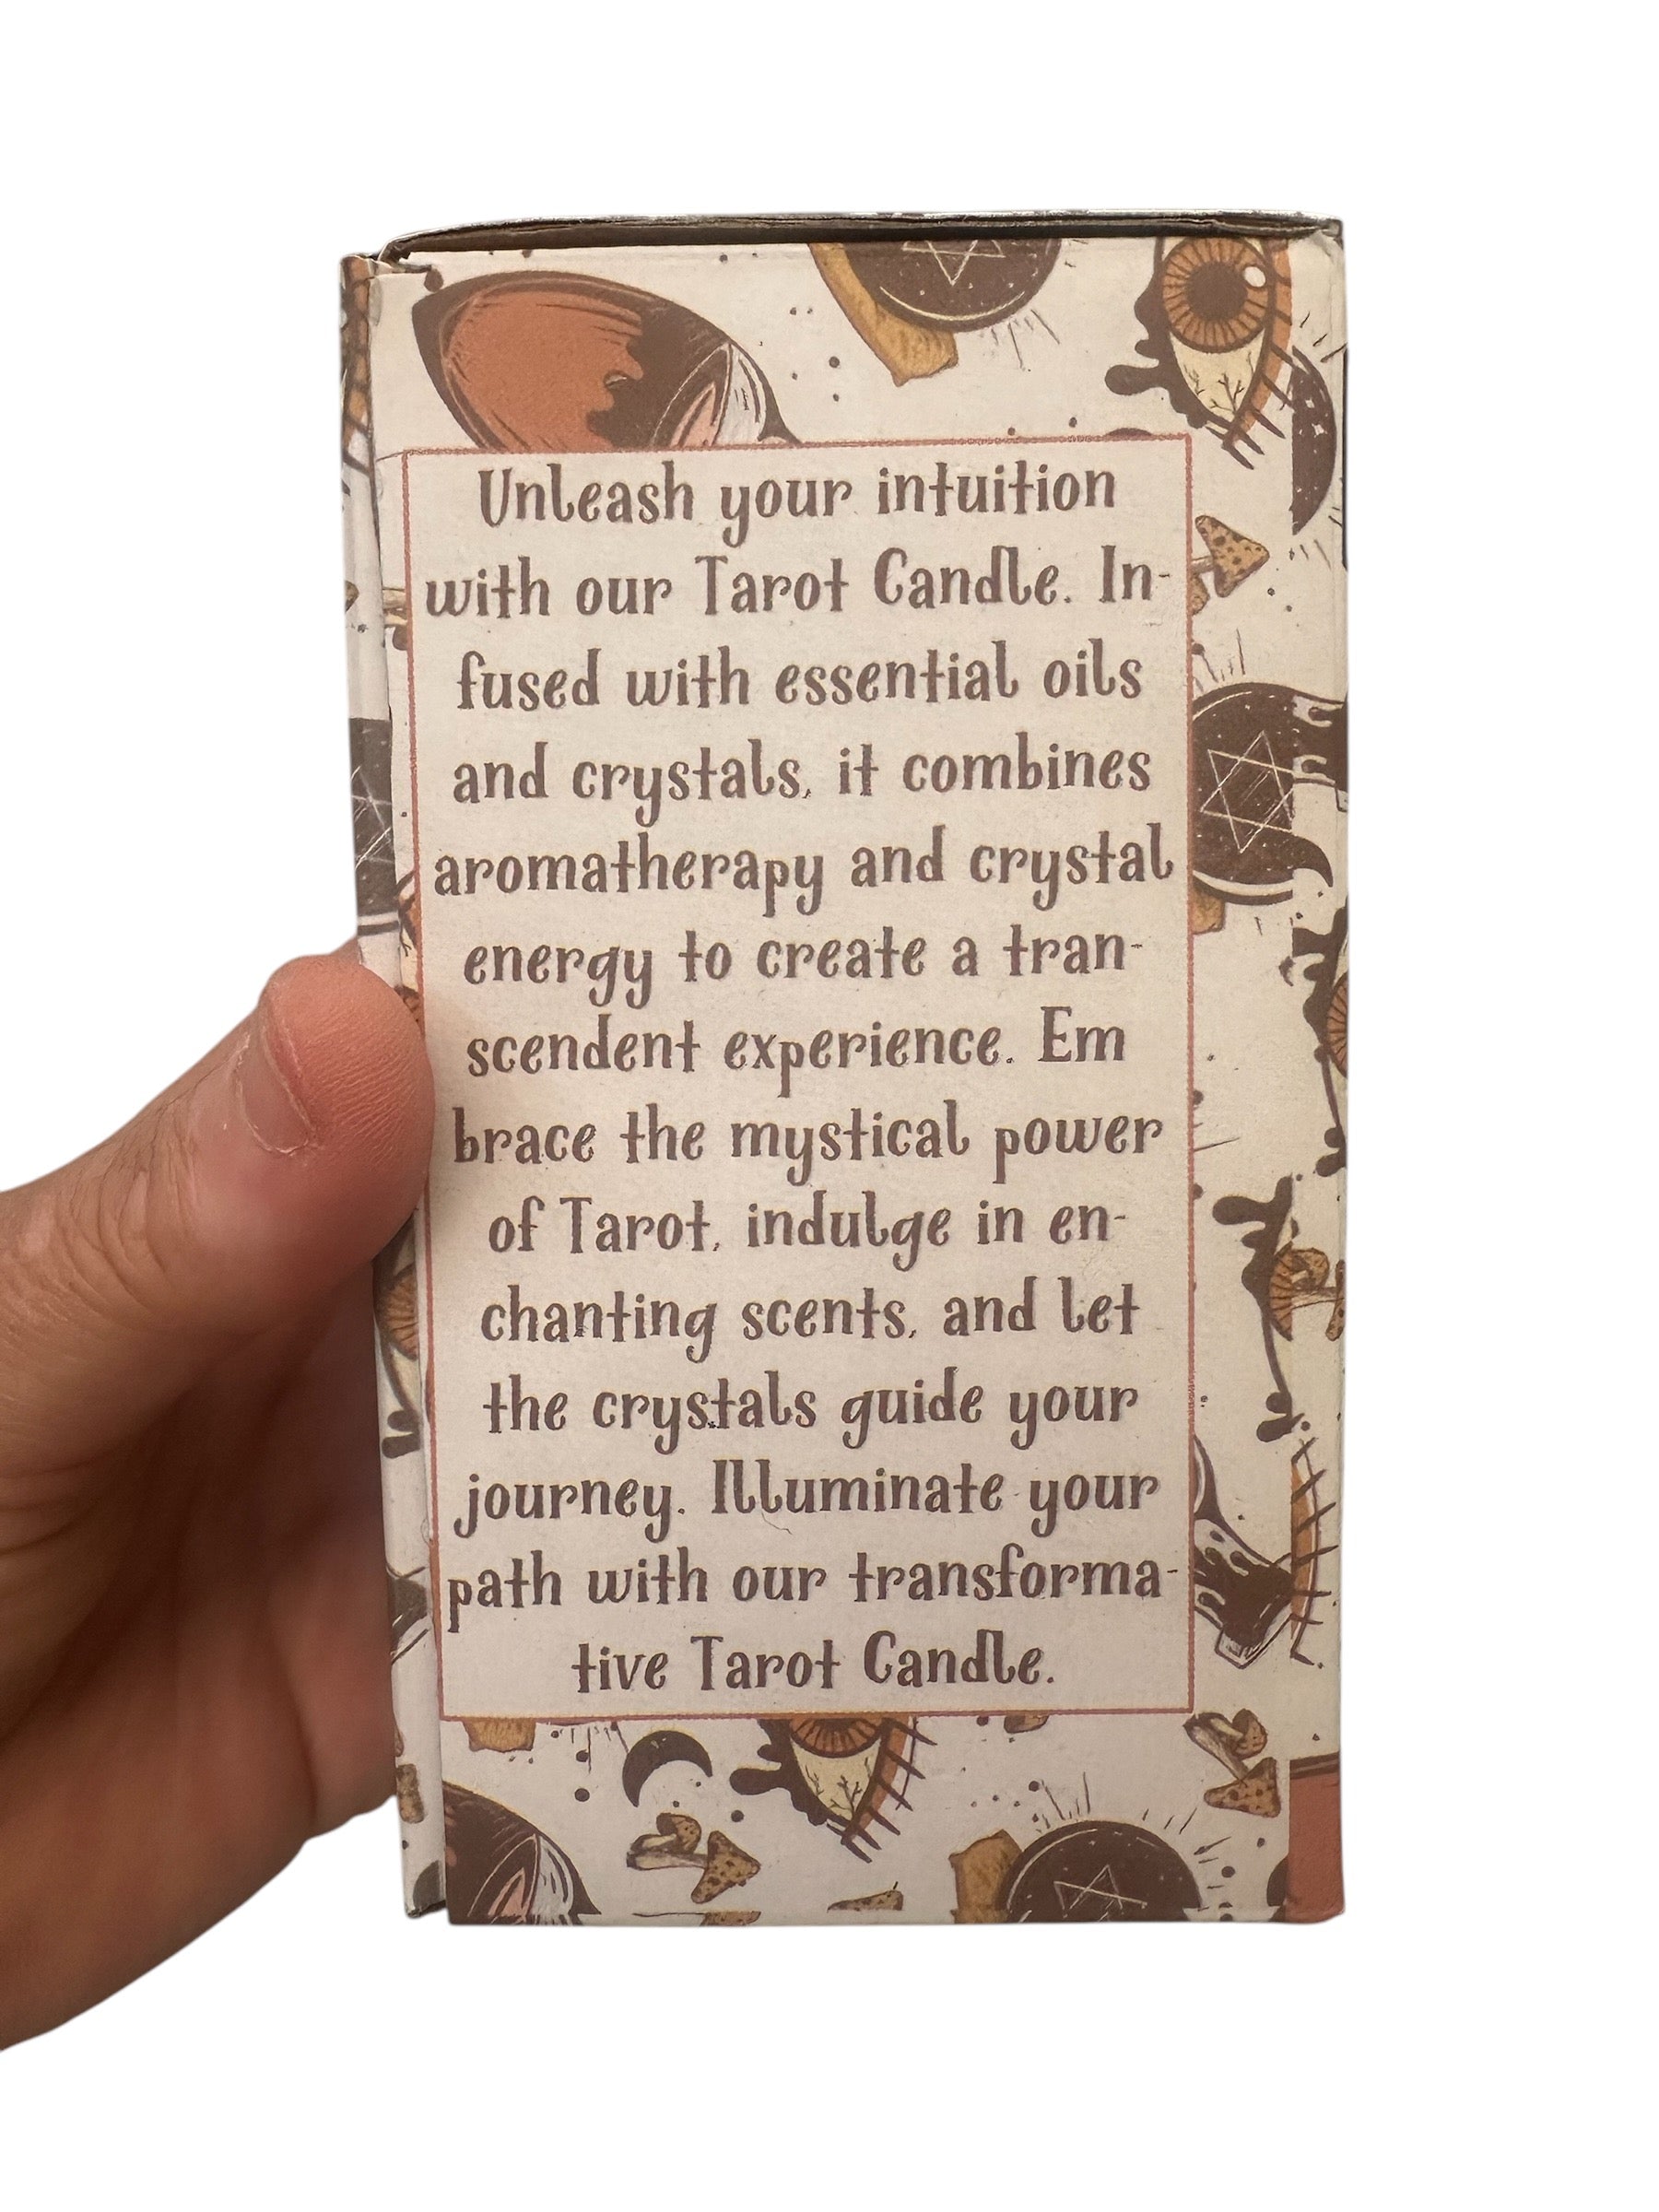 Unleash your intuition
with our Tarot Candle. In-
fused with essential oils
and crystals, it combines
aromatherapy and crystal
energy to create a tran-
scendent experience. Em
brace the mystical power
of Tarot, indulge in en-
chanting scents, and let
the crystals guide your
journey. Illuminate your
path with our transforma-
tive Tarot Candle.